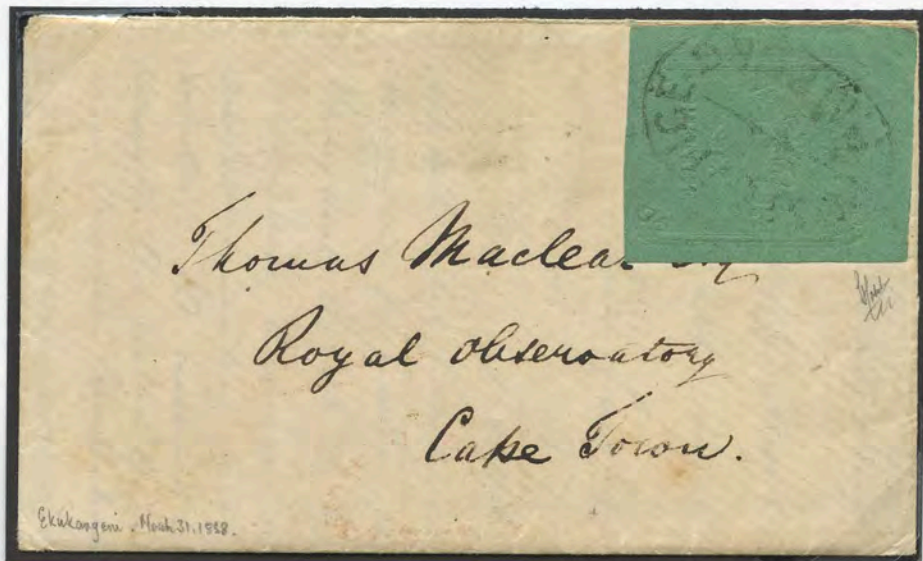 Thomas Maclear Esq
Royal Observatory
Cape Town.
Ekukangeni. March 31. 1858.